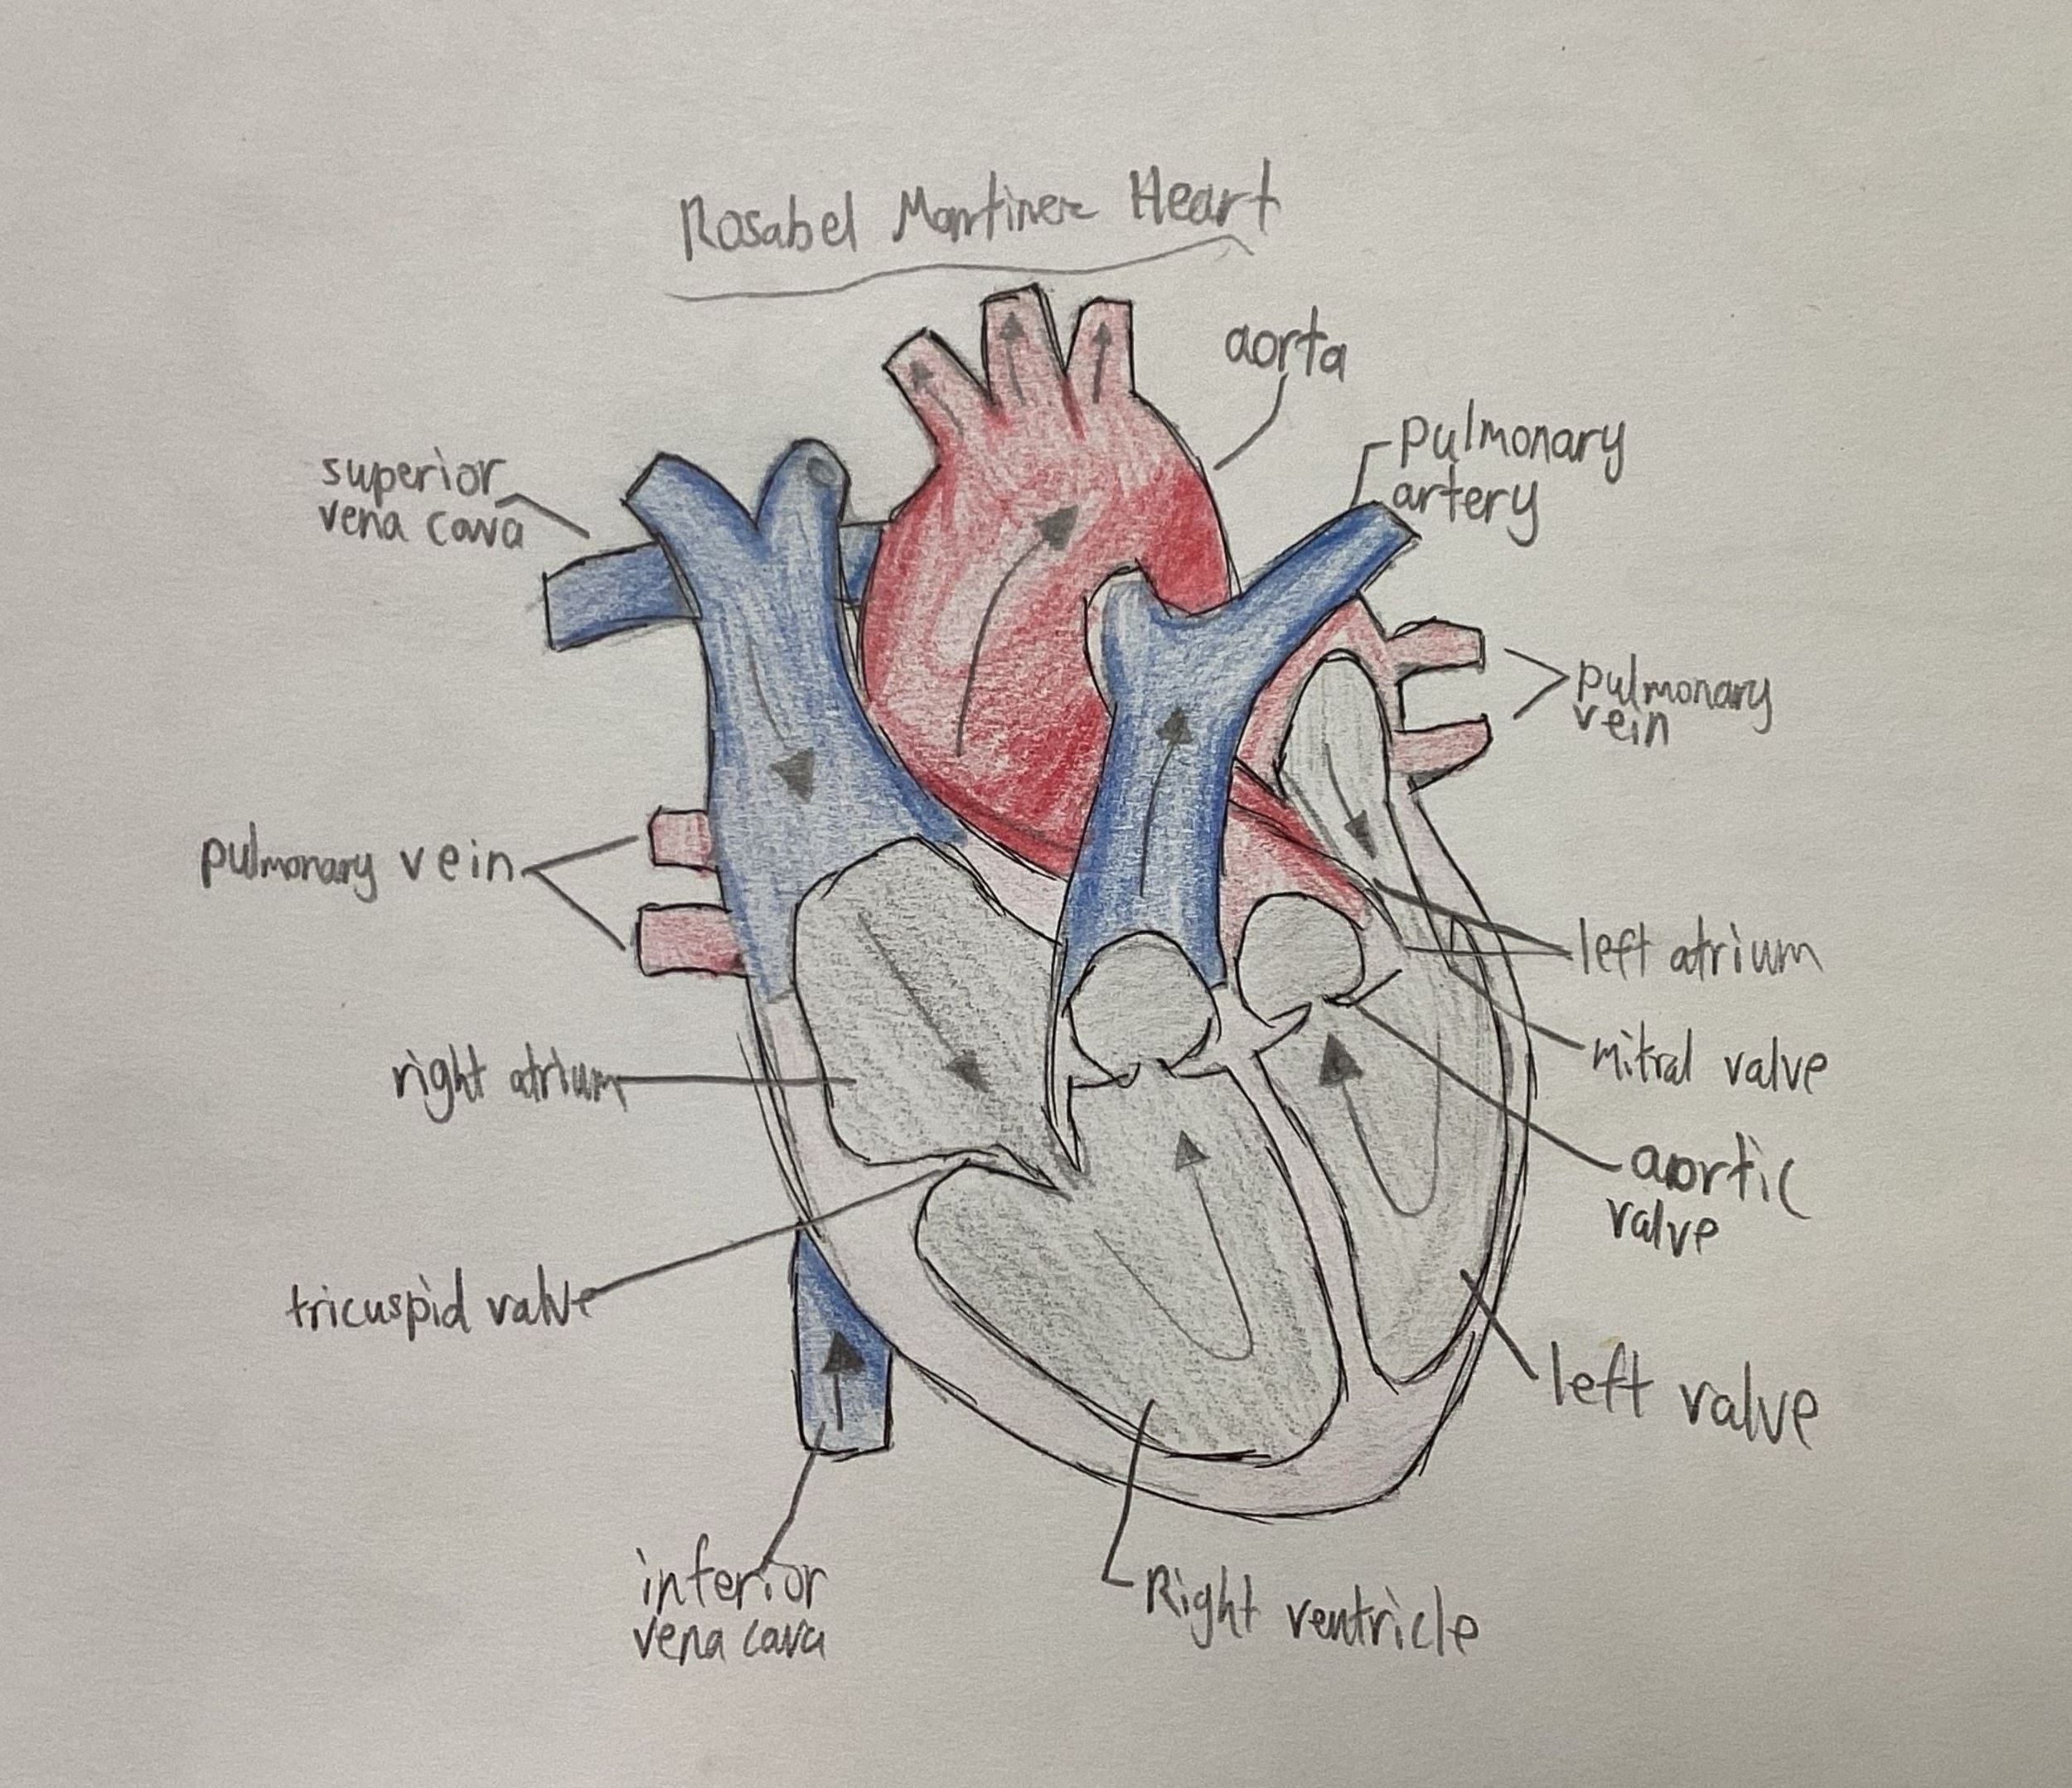 Rosabel Martinez Heart
aorta
pulmonary
artery
superior
vena cava
pulmonary
vein
pulmonary vein
left atrium
mitral valve
right atrium
aortic
valve
tricuspid valve
left valve
inferior
vena cava
Right ventricle